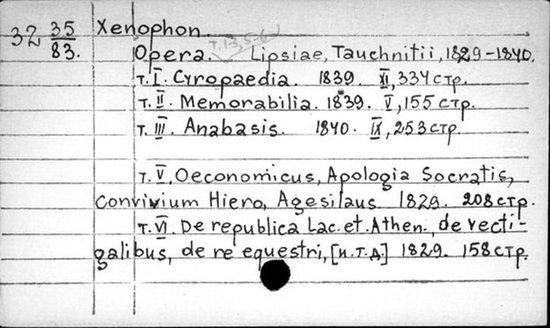 32 35/83. Xenophon.
Opera. т. 1-3, 5-6. Lipsiae, Tauchnitii, 1829-1840.
т. I. Cyropaedia. 1839. XI, 334 стр.
т. II. Memorabilia. 1839. V, 155 стр.
т. III. Anabasis. 1840. IX, 253 стр.
т. V. Oeconomicus, Apologia Socratis,
Convivium Hiero, Agesilaus 1829. 208 стр.
т. VI. De republica Lac. et. Athen., de vecti-
galibus, de re equestri, [и.т.д.] 1829. 158 стр.